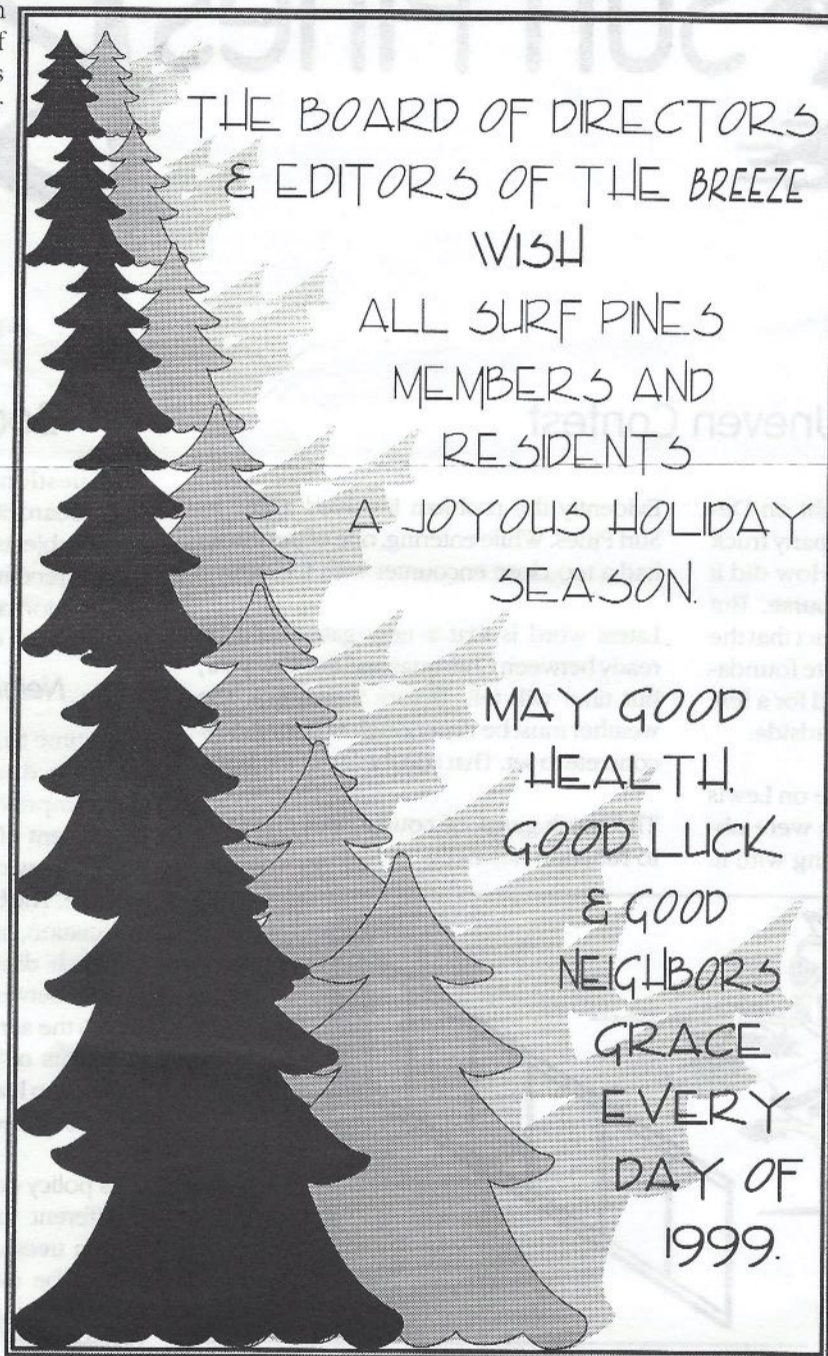 THE BOARD OF DIRECTORS
& EDITORS OF THE BREEZE
WISH
ALL SURF PINES
MEMBERS AND
RESIDENTS
A JOYOUS HOLIDAY
SEASON.
MAY GOOD
HEALTH,
GOOD LUCK,
& GOOD
NEIGHBORS
GRACE
EVERY
DAY OF
1999.